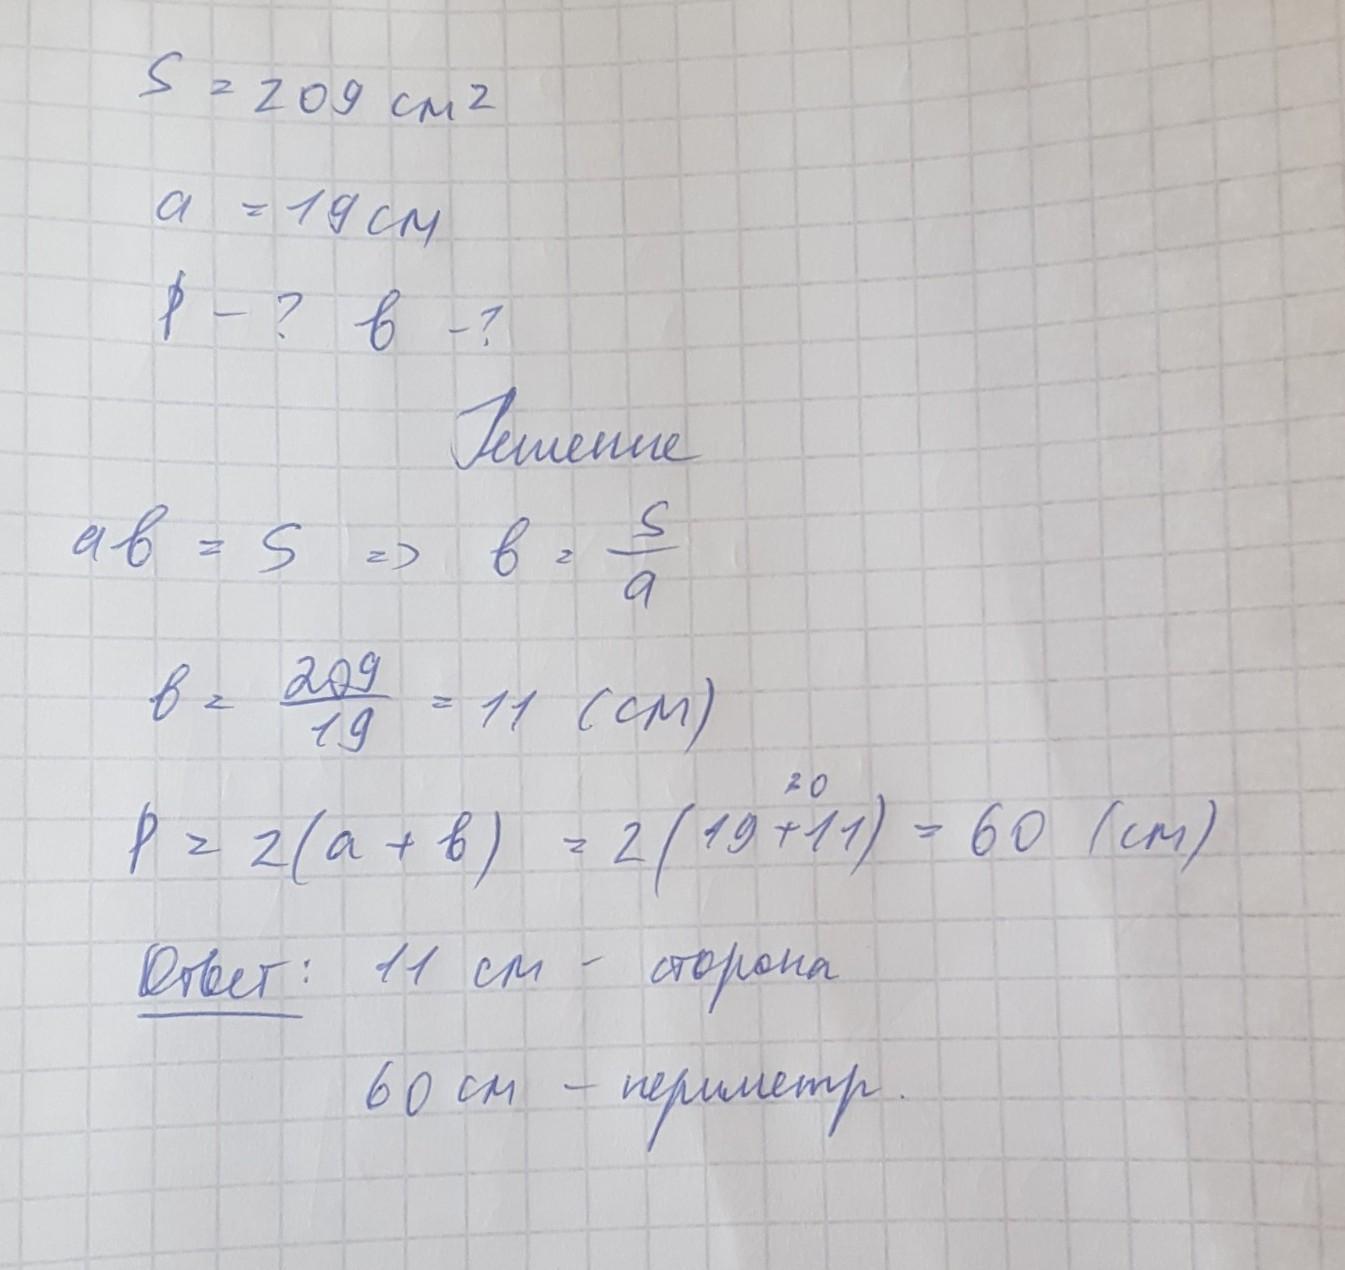 S = 209 см²
a = 19 см
P - ? в - ?
Решение
ав = S => в = S/a
в = 209/19 = 11 (см)
20
P = 2(a + в) = 2(19+11) = 60 (см)
Ответ: 11 см - сторона
60 см - периметр.